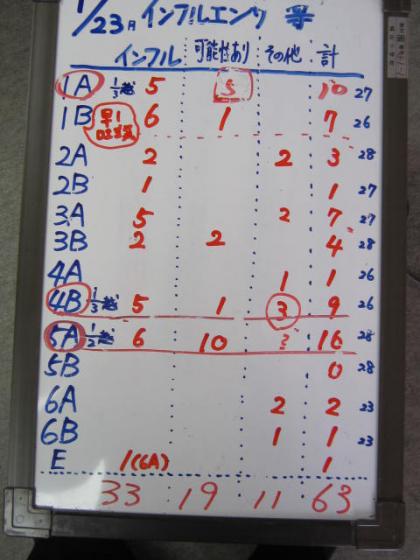 1/23月 インフルエンザ 等
インフル 可能性あり その他 計
1A 1/3越 5 5 10 27
1B 早! 6 1 7 26
2A 2 2 3 28
2B 1 1 27
3A 5 2 7 27
3B 2 2 4 28
4A 1 1 26
4B 1/3越 5 1 3 9 26
5A 1/2越 6 10 ? 16 28
5B 0 28
6A 2 2 23
6B 1 1 23
E 1(6A) 1
33 19 11 63